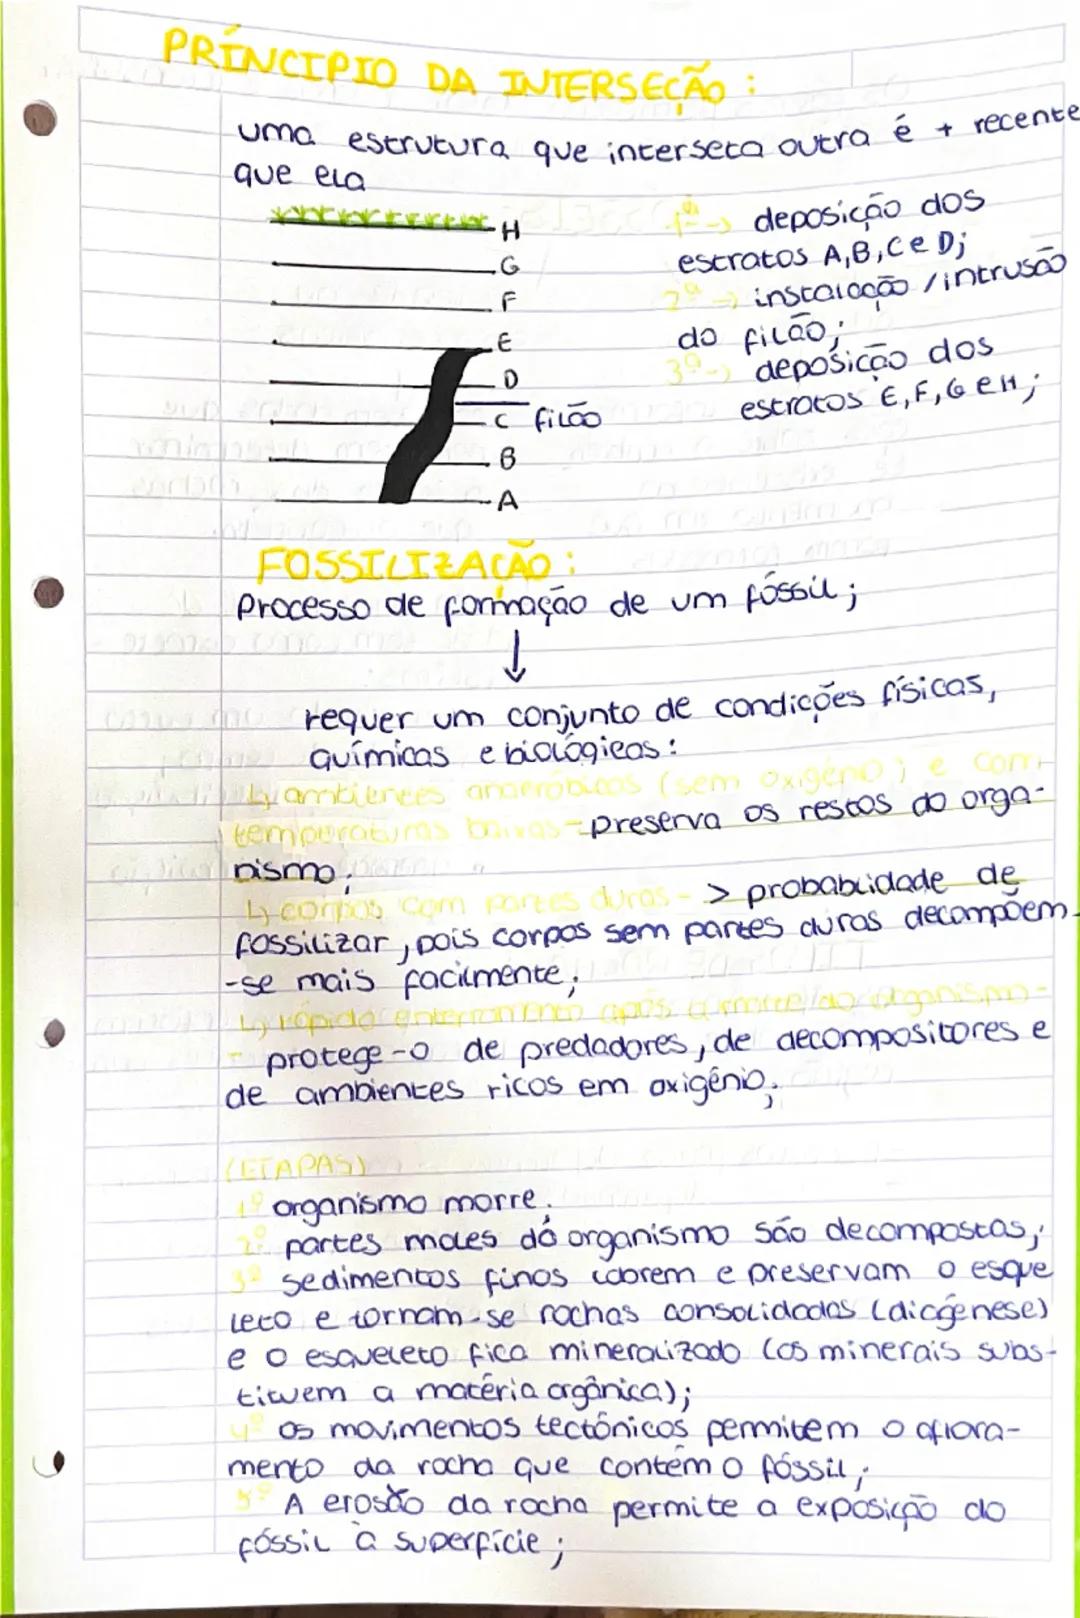 PRÍNCIPIO DA INTERSEÇÃO :
uma estrutura que interseta outra é + recente
que ela
H
G
F
E
D
C filão
B
A
1ª -> deposição dos
estratos A,B,C e D;
2ª -> instalação / intrusão
do filão;
3ª -> deposição dos
estratos E,F,G e H;
FOSSILIZAÇÃO :
Processo de formação de um fóssil ;
requer um conjunto de condições físicas,
químicas e biológicas :
↳ ambientes anaeróbicos (sem oxigénio) e com
temperaturas baixas - preserva os restos do orga-
nismo ;
↳ corpos com partes duras - > probabilidade de
fossilizar , pois corpos sem partes duras decompõem-
-se mais facilmente ;
↳ rápido enterramento após a morte do organismo -
- protege-o de predadores, de decompositores e
de ambientes ricos em oxigênio ;
(ETAPAS)
1º organismo morre ;
2º partes moles do organismo são decompostas ;
3º sedimentos finos cobrem e preservam o esque
leto e tornam-se rochas consolidadas (diagénese)
e o esqueleto fica mineralizado (os minerais subs-
tituem a matéria orgânica) ;
4º os movimentos tectónicos permitem o aflora-
mento da rocha que contém o fóssil ;
5º A erosão da rocha permite a exposição do
fóssil à superfície ;